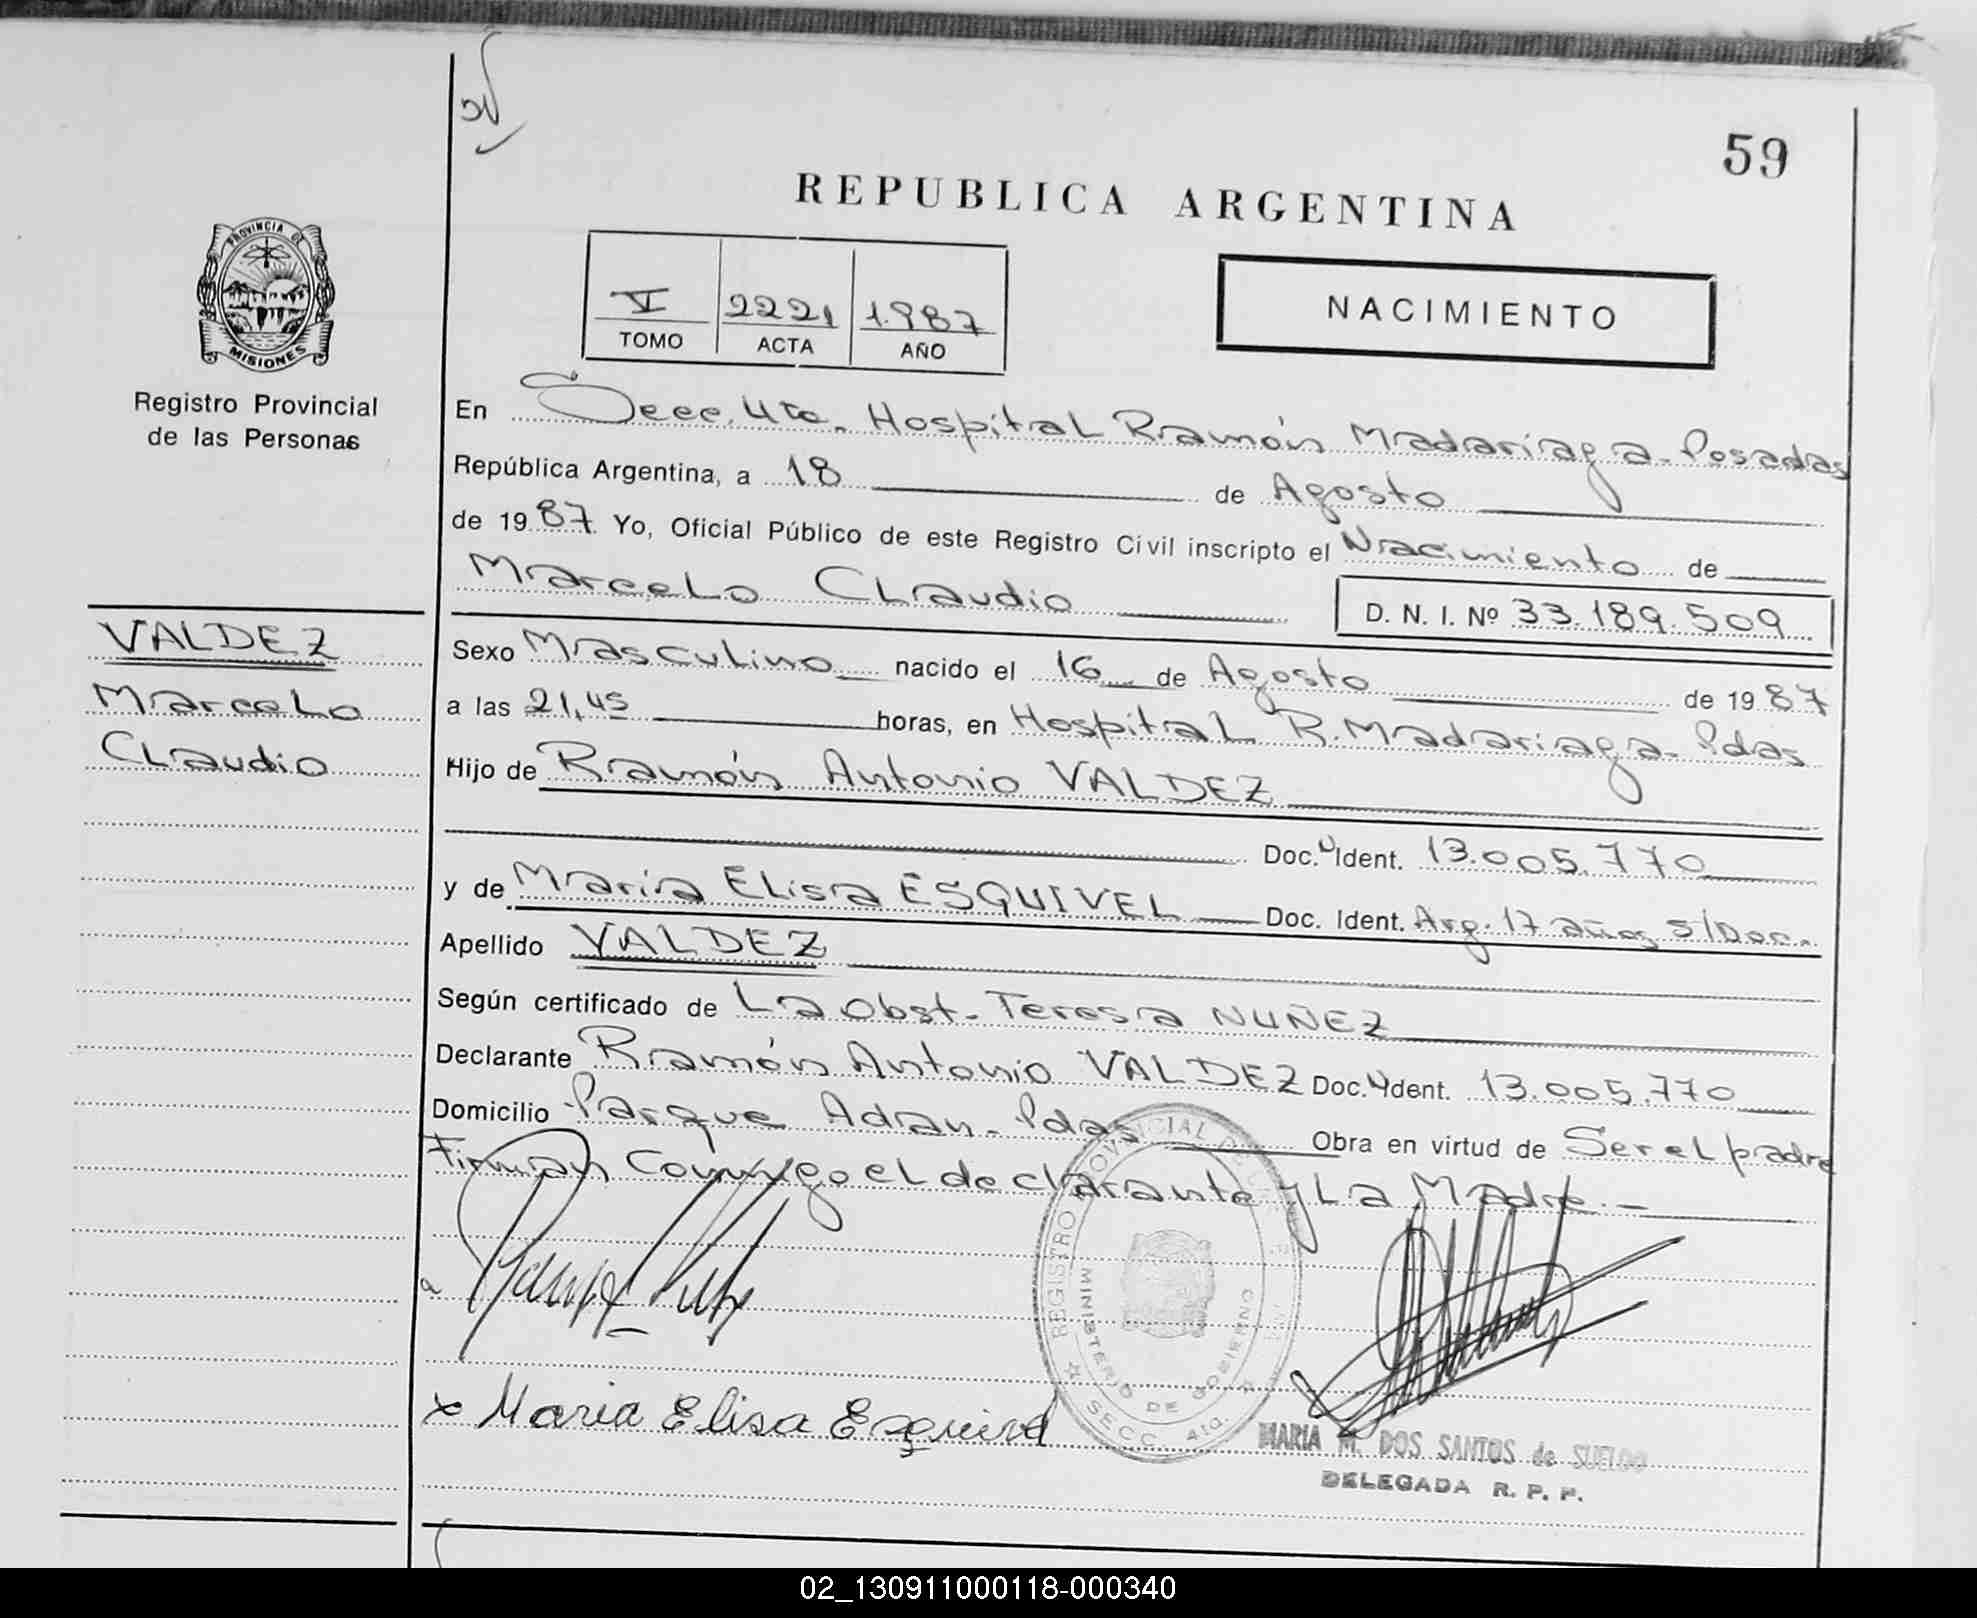 59
REPUBLICA ARGENTINA
PROVINCIA DE
MISIONES
Registro Provincial
de las Personas
V 2221 1.987
TOMO ACTA AÑO
NACIMIENTO
En Secc. 4ta. Hospital Ramón Madariaga - Posadas
República Argentina, a 18 de Agosto
de 1987 Yo, Oficial Público de este Registro Civil inscripto el Nacimiento de
Marcelo Claudio D. N. I. Nº 33.189.509
VALDEZ
Marcelo
Claudio
Sexo Masculino nacido el 16 de Agosto de 1987
a las 21,45 horas, en Hospital R. Madariaga - Pdas
Hijo de Ramón Antonio VALDEZ
Doc. Ident. 13.005.770
y de María Elisa ESQUIVEL Doc. Ident. Arg. 17 años s/Doc.
Apellido VALDEZ
Según certificado de La Obst. Teresa NUÑEZ
Declarante Ramón Antonio VALDEZ Doc. Ident. 13.005.770
Domicilio Parque Adan - Pdas Obra en virtud de Ser el padre
Firman Conmigo el declarante y La Madre. -
REGISTRO PROVINCIAL DE
MINISTERIO DE GOBIERNO
SECC. 4ta.
x Maria Elisa Esquivel
MARIA M. DOS SANTOS de SUELDO
DELEGADA R. P. P.
02_130911000118-000340